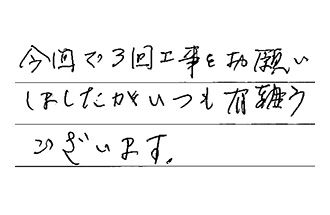 今回で3回工事をお願い
しましたがいつも有難う
ございます。